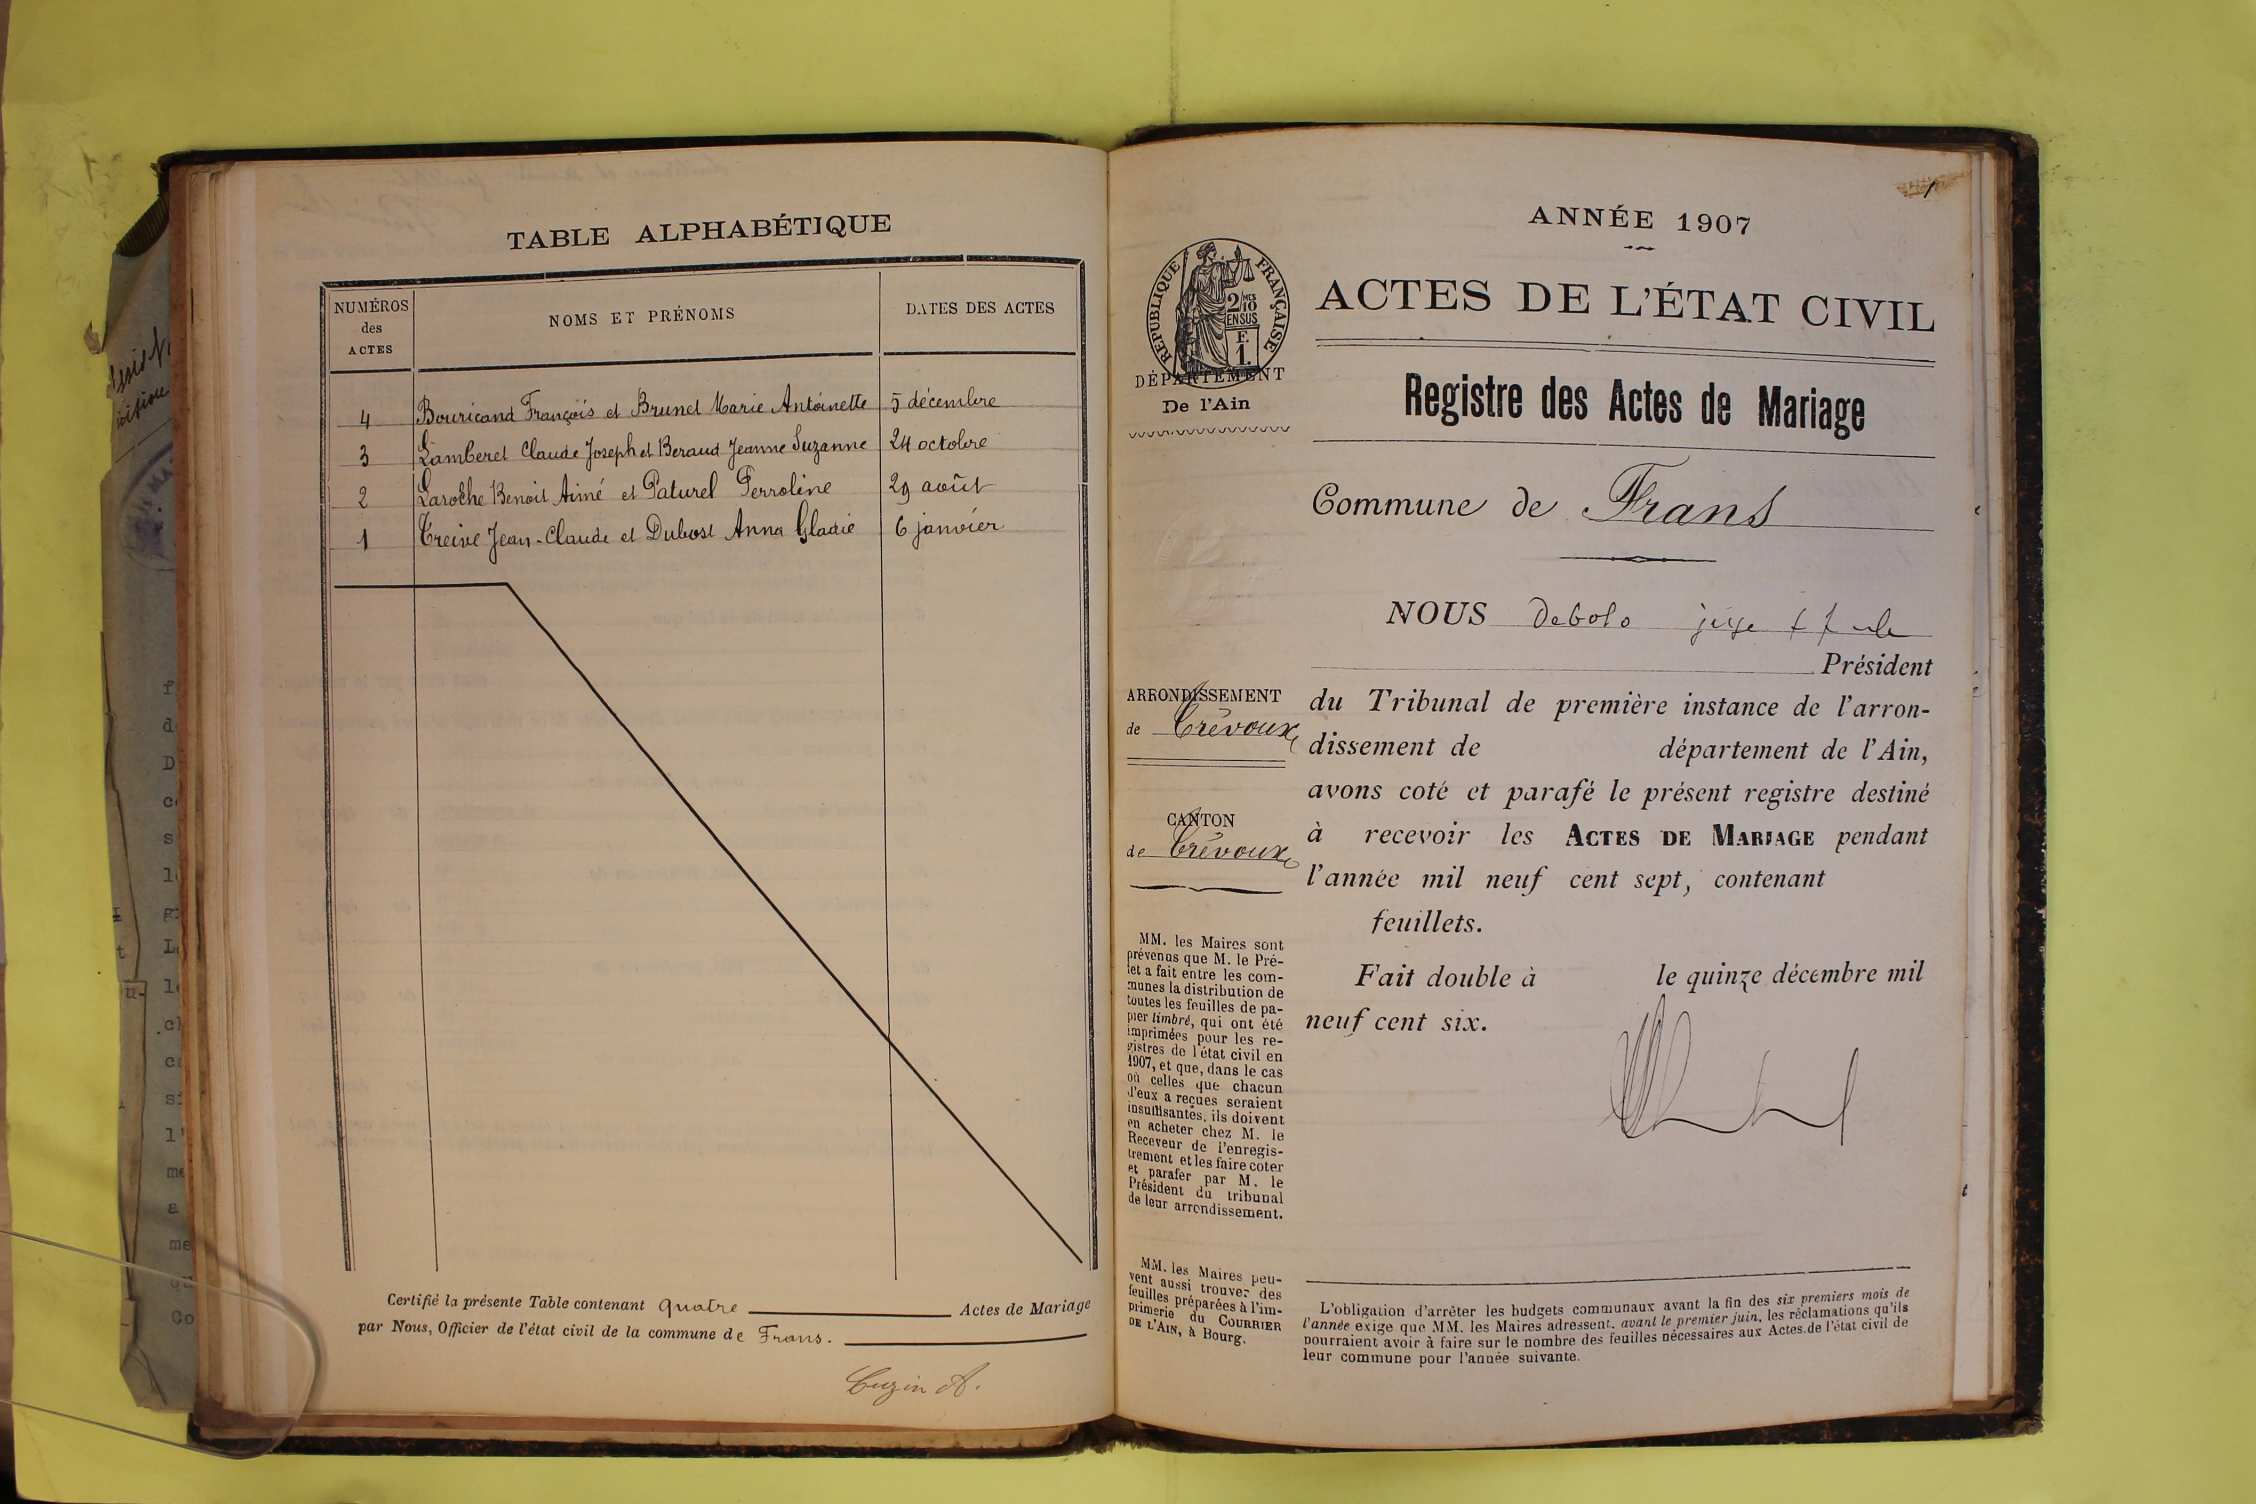 TABLE ALPHABÉTIQUE
NUMÉROS des ACTES
NOMS ET PRÉNOMS
DATES DES ACTES
4 Bouricand François et Brunet Marie Antoinette 5 décembre
3 Lamberet Claude Joseph et Beraud Jeanne Suzanne 24 octobre
2 Laroche Benoit Aimé et Paturel Perroline 29 août
1 Treive Jean-Claude et Dubost Anna Gladie 6 janvier
Certifié la présente Table contenant quatre Actes de Mariage
par Nous, Officier de l'état civil de la commune de Frans.
Cuzin A.
1
ANNÉE 1907
RÉPUBLIQUE FRANÇAISE
2/10 MES
EN SUS
F.
1.
ACTES DE L'ÉTAT CIVIL
DÉPARTEMENT
De l'Ain
Registre des Actes de Mariage
Commune de Frans
NOUS Debolo juge
Président
ARRONDISSEMENT
de Trévoux
du Tribunal de première instance de l'arron-
dissement de département de l'Ain,
avons coté et parafé le présent registre destiné
CANTON
de Trévoux
à recevoir les ACTES DE MARIAGE pendant
l'année mil neuf cent sept, contenant
feuillets.
Fait double à le quinze décembre mil
neuf cent six.
MM. les Maires sont
prévenus que M. le Pré-
fet a fait entre les com-
munes la distribution de
toutes les feuilles de pa-
pier timbré, qui ont été
imprimées pour les re-
gistres de l'état civil en
1907, et que, dans le cas
où celles que chacun
d'eux a reçues seraient
insuffisantes, ils doivent
en acheter chez M. le
Receveur de l'enregis-
trement et les faire coter
et parafer par M. le
Président du tribunal
de leur arrondissement.
MM. les Maires peu-
vent aussi trouver des
feuilles préparées à l'im-
primerie du COURRIER
DE L'AIN, à Bourg.
L'obligation d'arrêter les budgets communaux avant la fin des six premiers mois de
l'année exige que MM. les Maires adressent, avant le premier juin, les réclamations qu'ils
pourraient avoir à faire sur le nombre des feuilles nécessaires aux Actes de l'état civil de
leur commune pour l'année suivante.